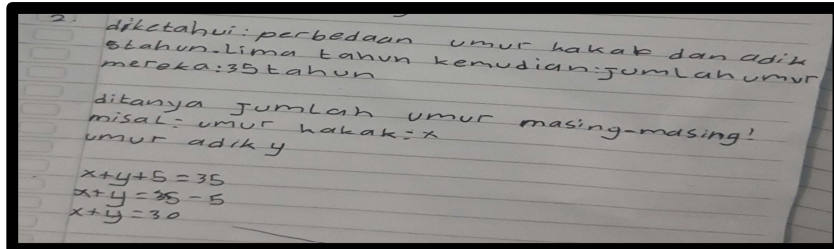 2.
diketahui: perbedaan umur kakak dan adik
5tahun. Lima tahun kemudian: jumlah umur
mereka: 35 tahun
ditanya Jumlah umur masing-masing!
misal: umur kakak: x
umur adik y
x+y+5 = 35
x+y = 35 - 5
x+y = 30